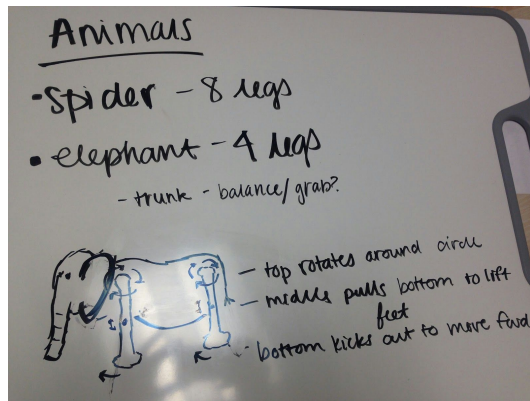 Animals
• Spider - 8 legs
• elephant - 4 legs
- trunk - balance/grab?
- top rotates around circle
- middle pulls bottom to lift
feet
- bottom kicks out to move fwd